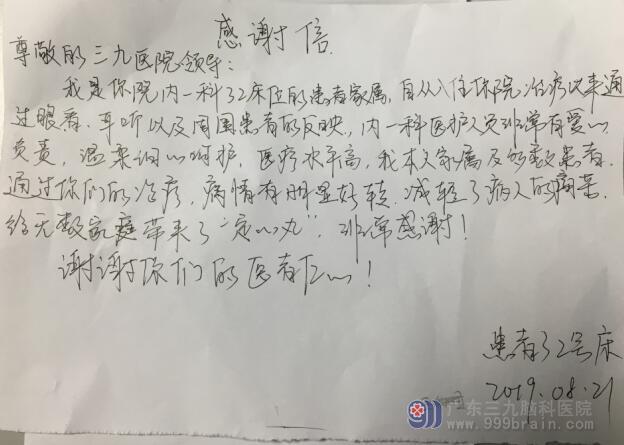 感谢信
尊敬的三九医院领导：
我是你院内一科32床位的患者家属，自从入住你院治疗以来通
过眼看、耳听以及周围患者的反映，内一科医护人员非常有爱心
负责，温柔细心呵护，医疗水平高，我本人家属及好多数患者，
通过你们的治疗，病情有明显好转，减轻了病人的痛苦，
给无数家庭带来了"定心丸"，非常感谢！
谢谢你们的医者仁心！
患者32号床
2019.08.21
广东三九脑科医院
www.999brain.com